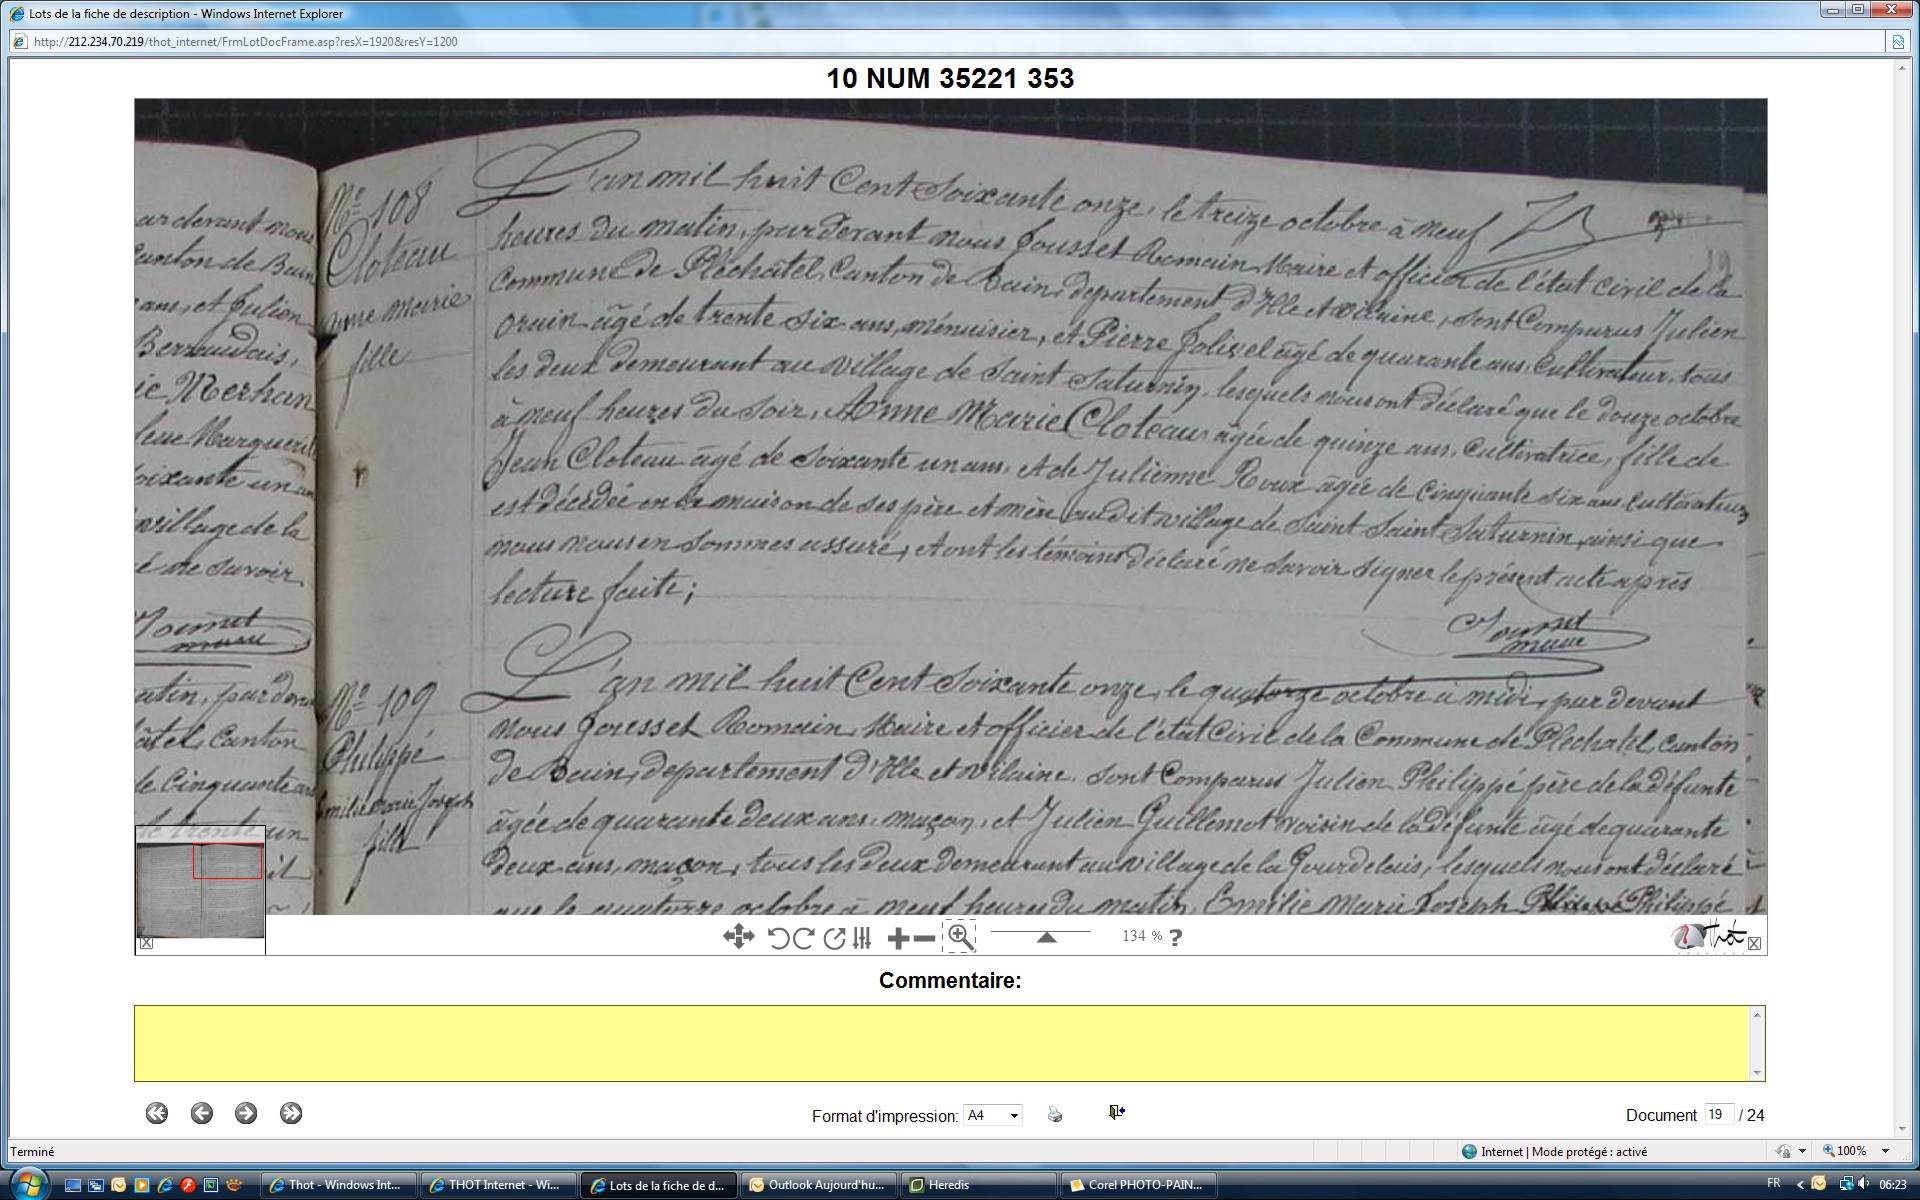 Lots de la fiche de description - Windows Internet Explorer
http://212.234.70.219/thot_internet/FrmLotDocFrame.asp?resX=1920&resY=1200
10 NUM 35221 353
ar devant nous
Canton de Bain
ans, et Julien
ie Merhan
leue Marguerit
soixante un an
village de la
é ne savoir
N° 108
Cloteau
anne Marie
fille
L'an mil huit Cent Soixante onze, le treize octobre à neuf
heures du matin, par devant nous Jousset Romain Maire et officier de l'état civil de la
Commune de Pléchâtel, Canton de Bain, département d'Ille et Vilaine, sont Comparus Julien
orain âgé de trente six ans, menuisier, et Pierre Jolivel âgé de quarante ans, Cultivateur, tous
les deux demeurant au village de Saint Saturnin, lesquels nous ont déclaré que le douze octobre
à neuf heures du soir, Anne Marie Cloteau âgée de quinze ans, Cultivatrice, fille de
Jean Cloteau âgé de soixante un ans, et de Julienne Roux âgée de cinquante six ans Cultivateurs
est décédée en la maison de ses père et mère au dit village de Saint Saint Saturnin, ainsi que
nous nous en sommes assuré, et ont les témoins déclaré ne savoir signer le présent acte après
lecture faite;
Jousset
maire
N° 109
Philippé
Emilie Marie Joseph
fille
L'an mil huit Cent Soixante onze, le quatorze octobre à midi, par devant
nous Jousset Romain, Maire et officier de l'état Civil de la Commune de Pléchatel, Canton
de Bain, département d'Ille et Vilaine, sont Comparus Julien Philippé père de la défunte
âgée de quarante deux ans, maçon, et Julien Guillemot voisin de la défunte âgé de quarante
deux ans, maçon, tous les deux demeurant au village de la Gourdelais, lesquels nous ont déclaré
que le quatorze octobre à neuf heures du matin, Emilie Marie Joseph Philippé
134 % ?
Thot
Commentaire:
Format d'impression: A4
Document 19 / 24
Terminé
Internet | Mode protégé : activé
100%
Thot - Windows Int...
THOT Internet - Wi...
Lots de la fiche de d...
Outlook Aujourd'hu...
Heredis
Corel PHOTO-PAIN...
FR
06:23